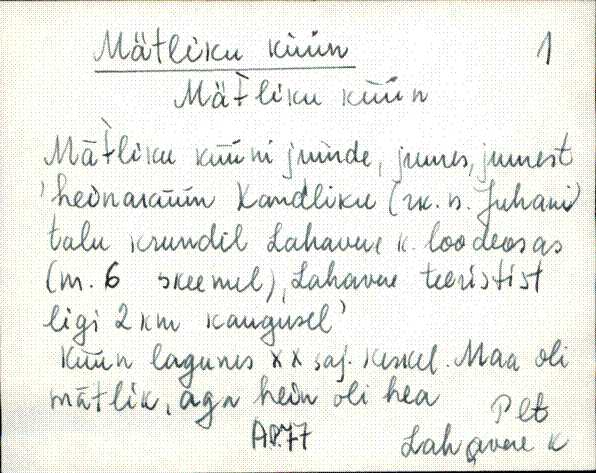 Mätliku küün 1
Mät̀liku küün
Mät̀liku küüni juurde, juures, juurest
'heinaküün Kandliku (rk. n. Juhani)
talu krundil Lahavere k. loodeosas
(m. 6 skeemil), Lahavere teeristist
ligi 2 km kaugusel'
Küün lagunes XX saj. keskel. Maa oli
mätlik, aga hein oli hea
Plt
AP.77
Lahavere k